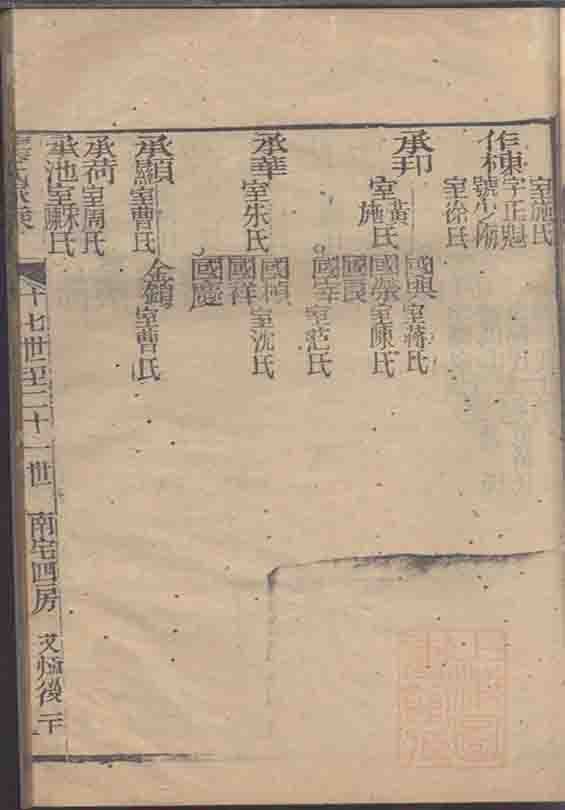 室施氏
作棟字正魁
號少陽
室徐氏
承邦
室黃氏
施
國興室蔣氏
國榮室陳氏
國良
國幸室范氏
承華
室朱氏
國楨室沈氏
國祥
國慶
承顯室曹氏
金鎖室曹氏
承荷室周氏
承池室陳氏
十七世至二十一世 南宅四房